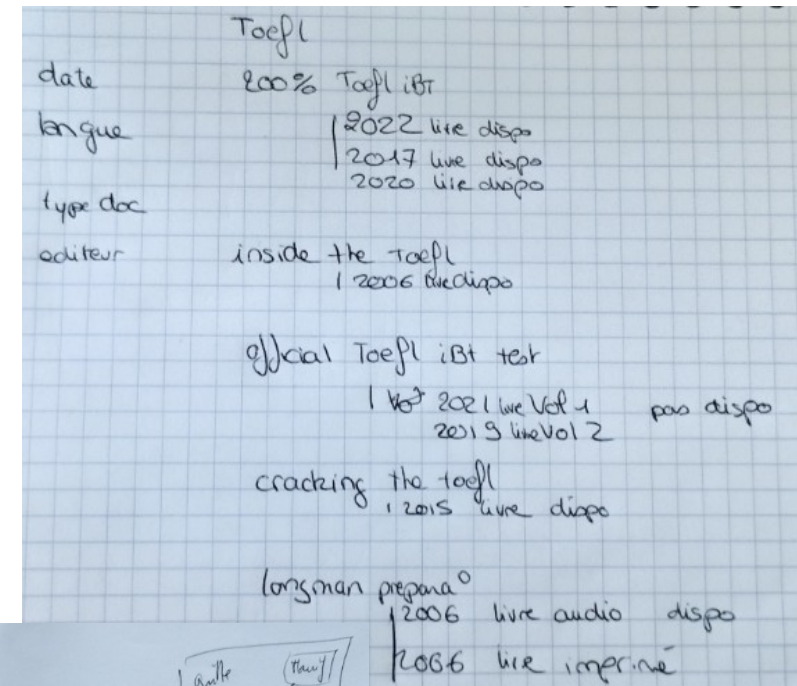 Toefl
date 200% Toefl iBT
langue 2022 livre dispo
2017 livre dispo
2020 livre dispo
type doc
editeur inside the Toefl
2006 livre dispo
official Toefl iBt test
2021 livre Vol 1 pas dispo
2019 livre Vol 2
cracking the toefl
2015 livre dispo
longman prepara°
2006 livre audio dispo
2006 livre imprimé